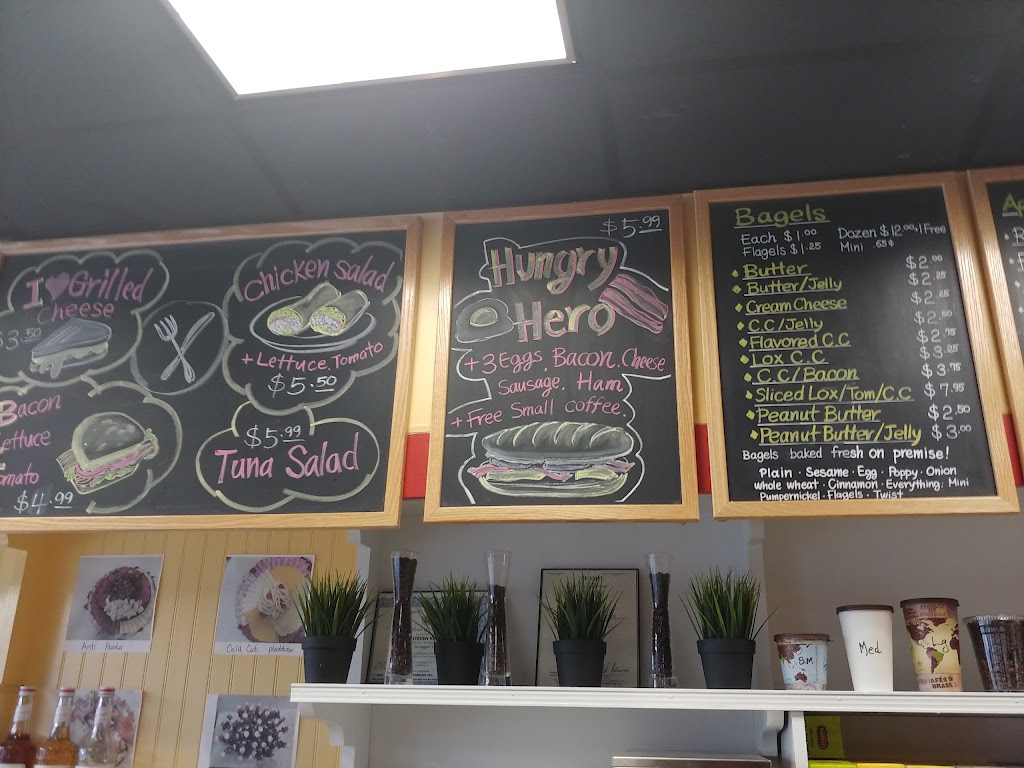 I Grilled
Cheese
$3.50
Chicken Salad
+ Lettuce. Tomato
$5.50
Bacon
Lettuce
Tomato
$4.99
$5.99
Tuna Salad
$5.99
Hungry
Hero
+ 3 Eggs. Bacon. Cheese
Sausage. Ham
+ Free Small Coffee.
Bagels
Each $1.00 Dozen $12.00 +1 Free
Flagels $1.25 Mini .65¢
Butter $2.00
Butter/Jelly $2.25
Cream Cheese $2.50
C.C/Jelly $2.75
Flavored C.C $3.25
Lox C.C. $3.75
C.C/Bacon
Sliced Lox/Tom/C.C $7.95
Peanut Butter $2.50
Peanut Butter/Jelly $3.00
Bagels baked fresh on premise!
Plain · Sesame · Egg · Poppy · Onion
whole wheat · Cinnamon · Everything · Mini
Pumpernickel · Flagels · Twist
Cold Cut
SM
Med
Lg
CAFÉS DO
BRASIL